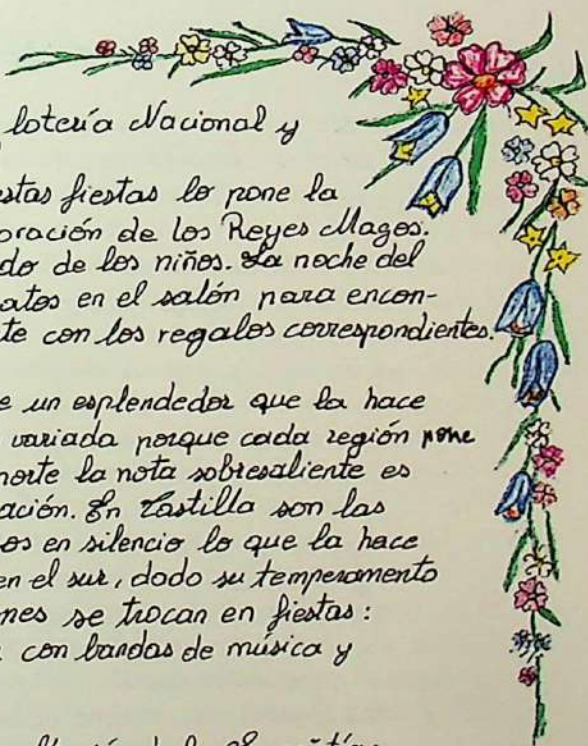 lotería Nacional y
estas fiestas lo pone la
oración de los Reyes Magos.
do de los niños. La noche del
atos en el salón para encon-
te con los regalos correspondientes.
e un esplendedor que la hace
variada porque cada región pone
norte la nota sobresaliente es
ación. En Castilla son las
os en silencio lo que la hace
en el sur, dodo su temperamento
nes se trocan en fiestas:
con bandas de música y